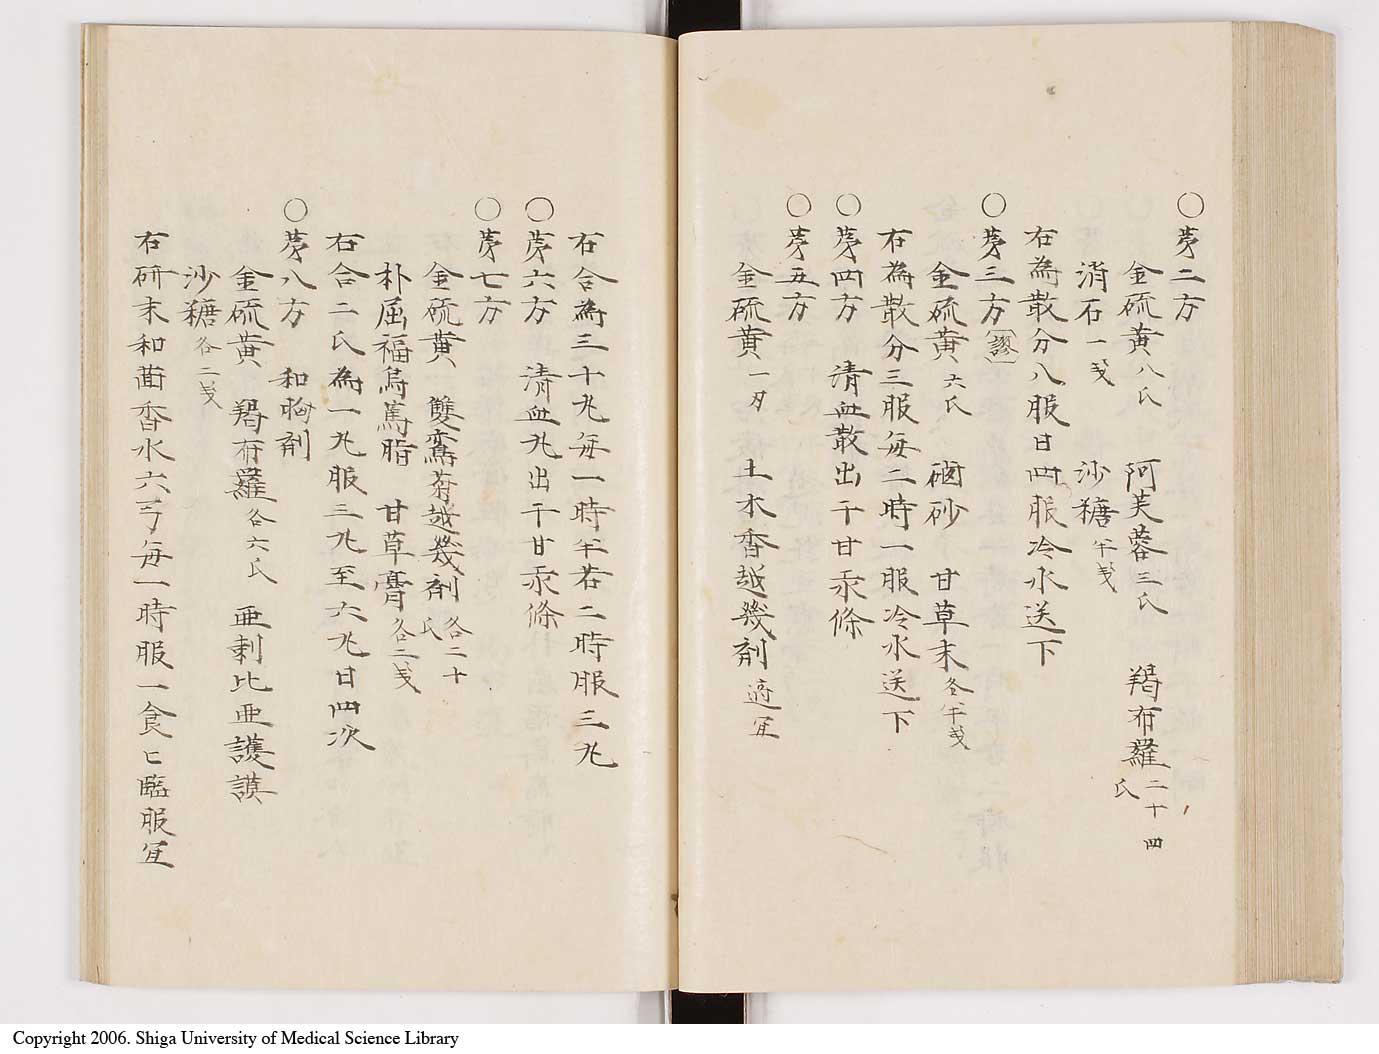 ○第二方
金硫黄八氏 阿芙蓉三氏 羯布羅二十四氏
消石一戔 沙糖半戔
右為散分八服日四服冷水送下
○第三方〔謬〕
金硫黄六氏 硇砂 甘草末各半戔
右為散分三服毎二時一服冷水送下
○第四方 清血散出于甘汞條
○第五方
金硫黄一刄 土木香越幾剤適宜
右合為三十丸毎一時半若二時服三丸
○第六方 清血丸出于甘汞條
○第七方
金硫黄 雙鸞菊越幾剤各二十氏
朴屈福烏篤脂 甘草膏各二戔
右合二氏為一丸服三丸至六丸日四次
○第八方 和胸剤
金硫黄 羯布羅各六氏 亜剌比亜護謨
沙糖各二戔
右研末和茴香水六弓毎一時服一食匕臨服宜